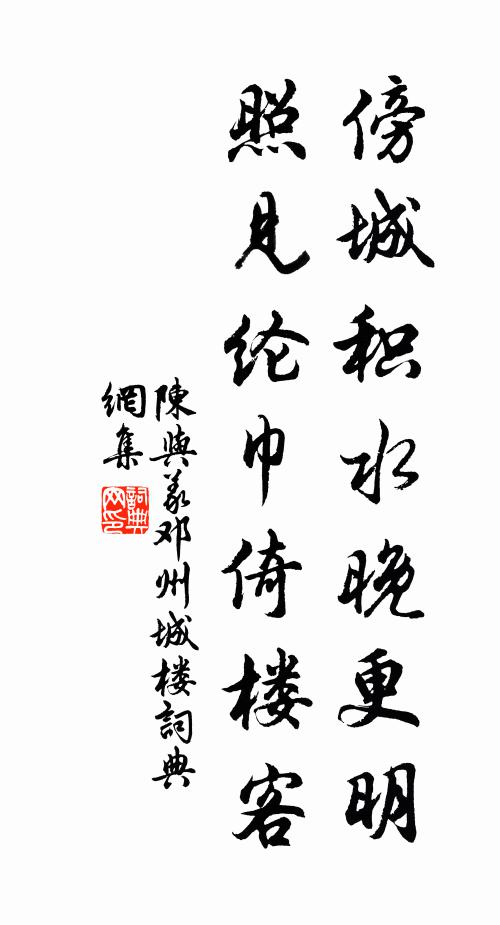 傍城积水晚更明
照见纶巾倚楼客
陳與义邓州城楼詞典
網集
詞典
网印